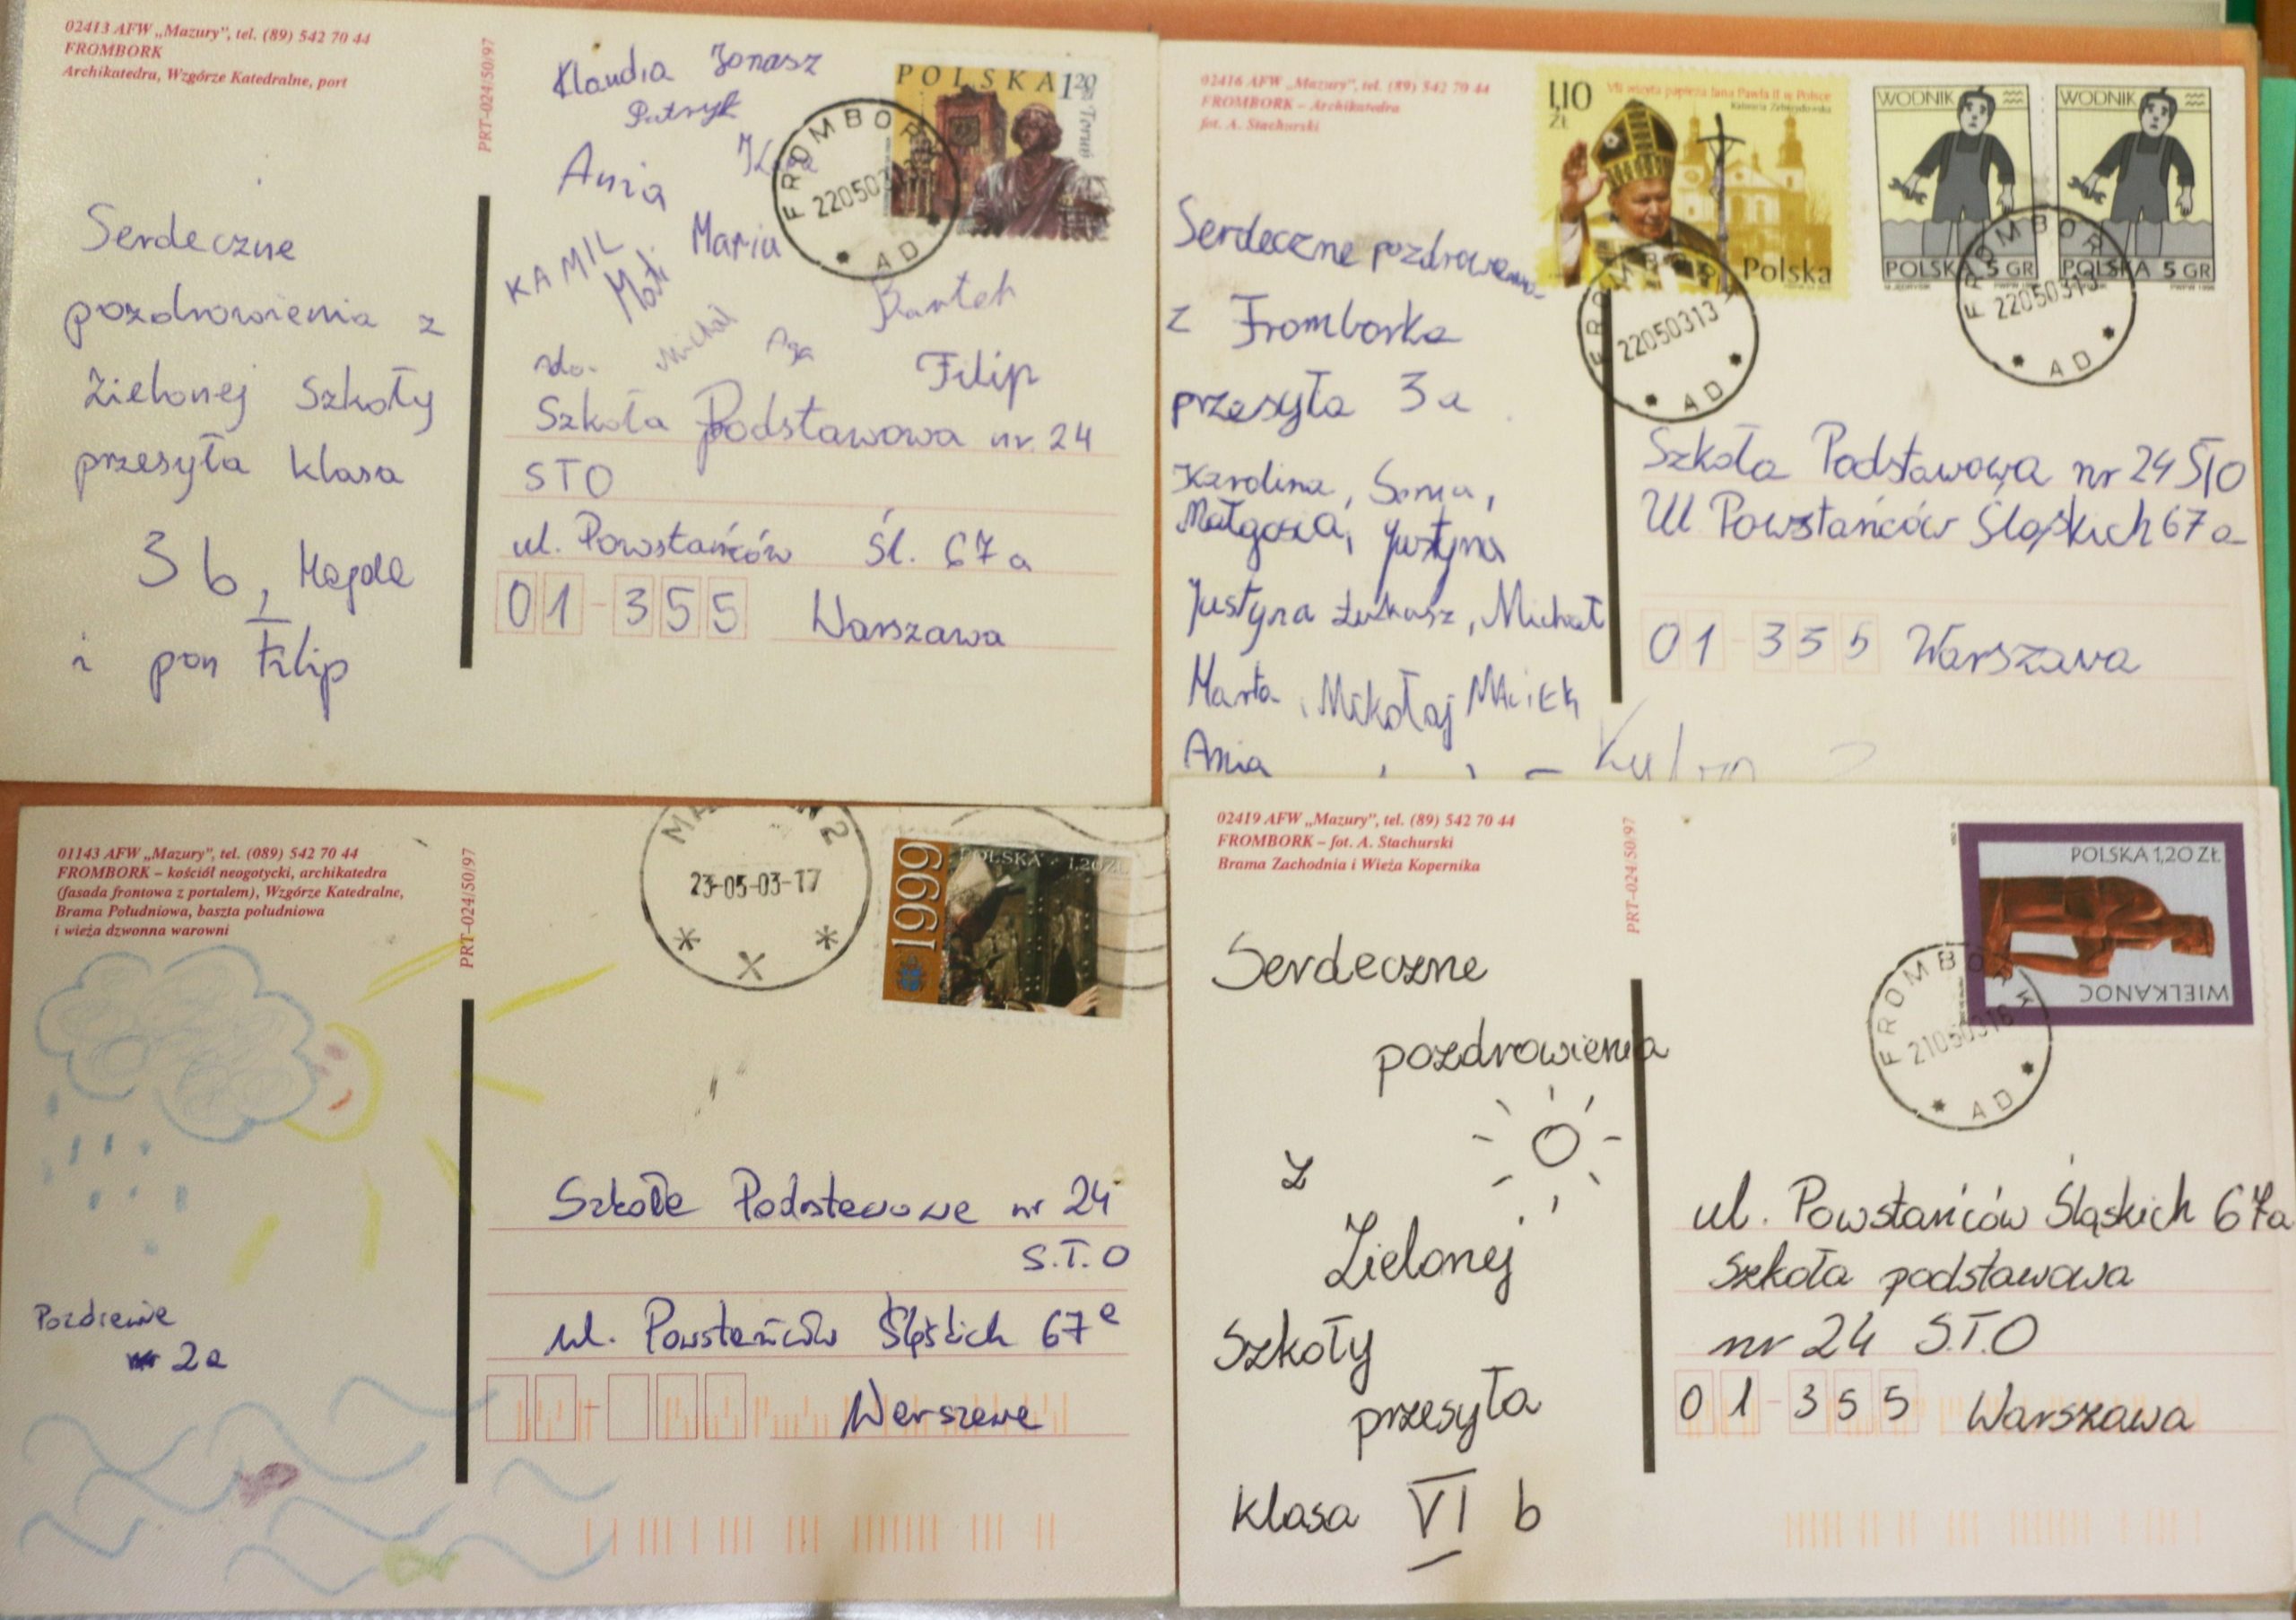 02413 AFW „Mazury”, tel. (89) 542 70 44
FROMBORK
Archikatedra, Wzgórze Katedralne, port
PRT-024/50/97
Serdeczne
pozdrowienia z
Zielonej Szkoły
przesyła klasa
3b, Magda
i pan Filip
Klaudia Jonasz
Patryk
Ania
KAMIL
Mati
Maria
Michał
Aga
Bartek
Filip
POLSKA 120
Toruń
FROMBORK
220503
AD
do.
Szkoła Podstawowa nr. 24
STO
ul. Powstańców Śl. 67a
01-355 Warszawa
02416 AFW „Mazury”, tel. (89) 542 70 44
FROMBORK – Archikatedra
fot. A. Stachurski
1,10 ZŁ
VII wizyta papieża Jana Pawła II w Polsce
Kalwaria Zebrzydowska
Polska
WODNIK
POLSKA 5 GR
WODNIK
POLSKA 5 GR
FROMBORK
22050313
AD
FROMBORK
22050313
AD
Serdeczne pozdrowienia
z Fromborka
przesyła 3a
Karolina, Sonia,
Małgosia, Justyna
Justyna Łukasz, Michał
Marta, Mikołaj Maciek
Ania
Szkoła Podstawowa nr 24 STO
Ul Powstańców Śląskich 67a
01-355 Warszawa
01143 AFW „Mazury”, tel. (089) 542 70 44
FROMBORK – kościół neogotycki, archikatedra
(fasada frontowa z portalem), Wzgórze Katedralne,
Brama Południowa, baszta południowa
i wieża dzwonna warowni
PRT-024/50/97
23-05-03-17
1999
POLSKA 1.20ZŁ
2a
Szkoła Podstawowa nr 24
S.T.O
ul. Powstańców Śląskich 67a
Warszawa
02419 AFW „Mazury”, tel. (89) 542 70 44
FROMBORK – fot. A. Stachurski
Brama Zachodnia i Wieża Kopernika
PRT-024/50/97
POLSKA 1,20 ZŁ
WIELKANOC
FROMBORK
21050316
AD
Serdeczne
pozdrowienia
z
Zielonej
Szkoły
przesyła
klasa VI b
ul. Powstańców Śląskich 67a
Szkoła podstawowa
nr 24 S.T.O
01-355 Warszawa